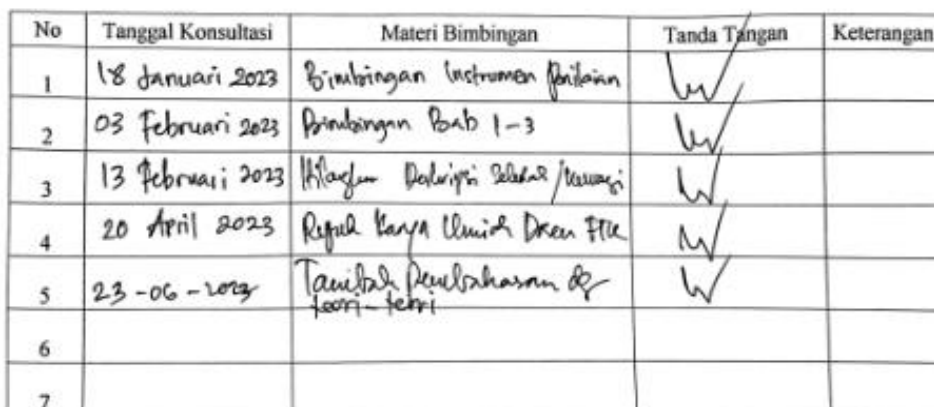 No Tanggal Konsultasi Materi Bimbingan Tanda Tangan Keterangan
1 18 Januari 2023 Bimbingan Instrumen Penilaian
2 03 Februari 2023 Bimbingan Bab 1-3
3 13 Februari 2023
4 20 April 2023 Karya Ilmiah Dosen FTK
5 23-06-2023 Tambah Pembahasan dg
teori-teori
6
7